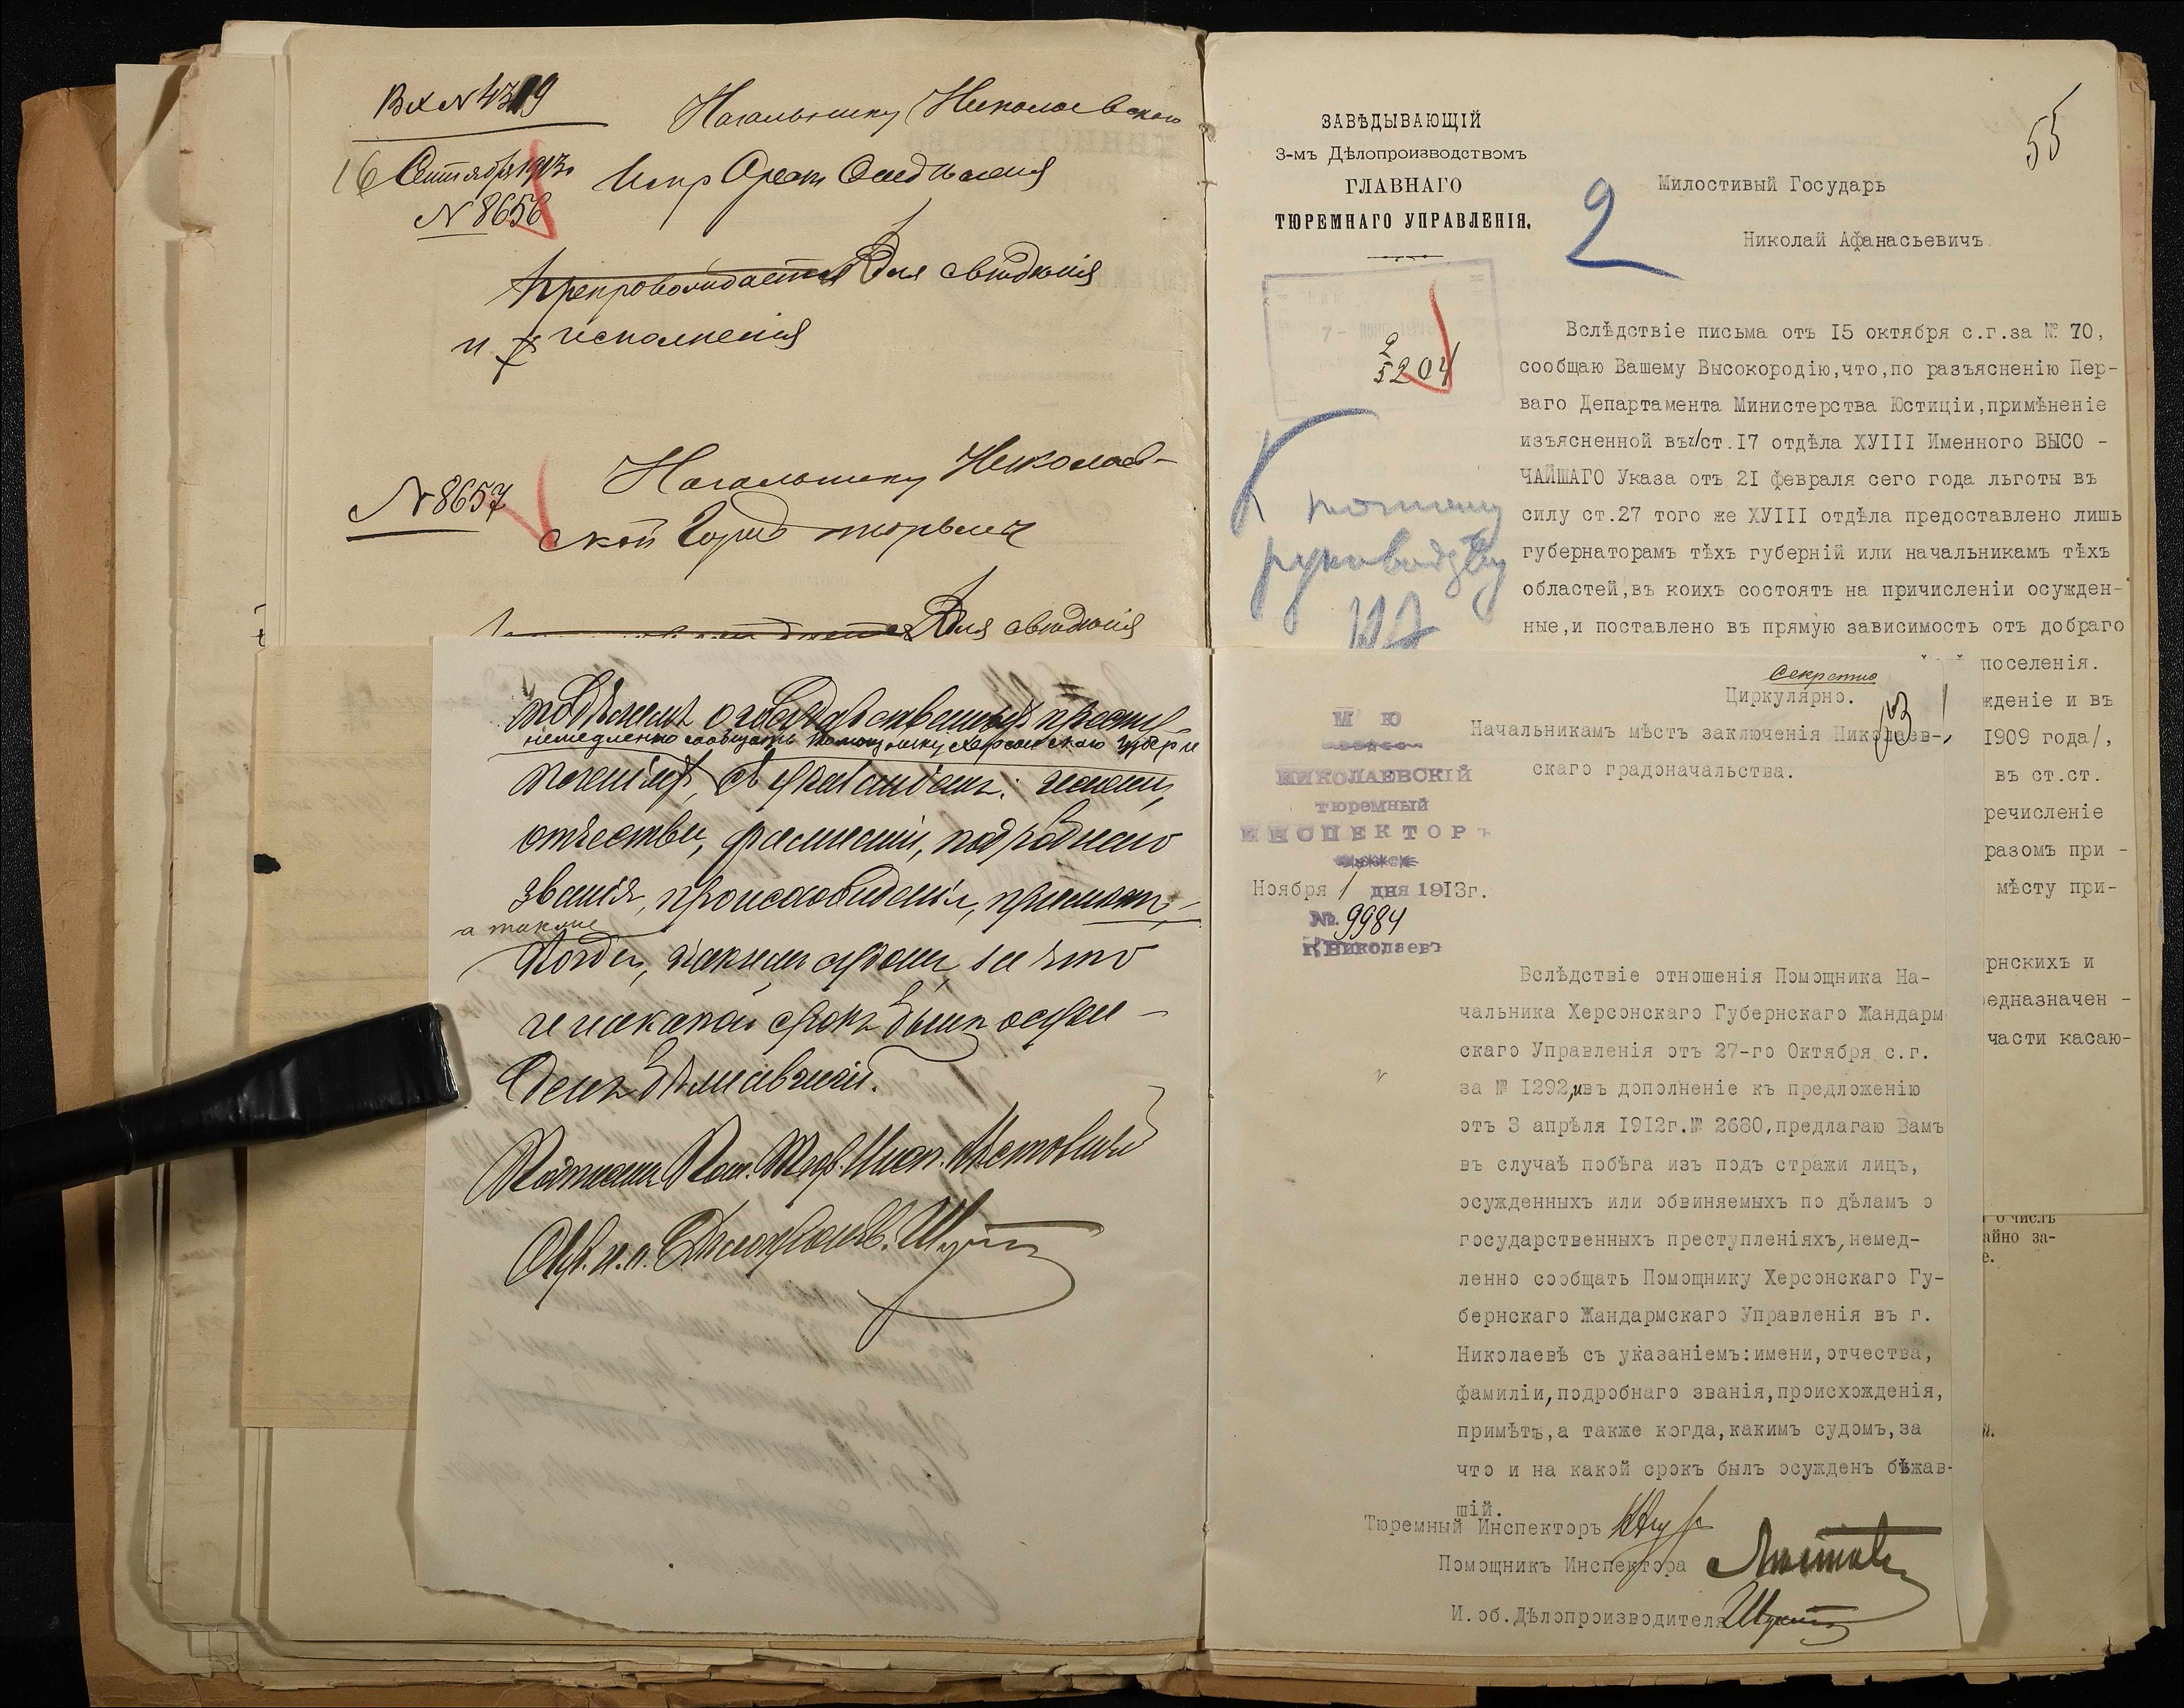 Вх N 4319
Начальнику Николаевскаго
16 Сентября 1913г.
Испр Арест Отдѣленія
N 8656
Препровождается Для свѣдѣнія
и исполненія
N 8657
Начальнику Николаев-
ской Город тюрьмы
Для свѣдѣнія
немедленно сообщать Помощнику Херсонскаго Губерн
отчества, фамиліи, подробнаго
званія, происхожденія, примѣтъ,
а также
когда, какимъ судомъ, за что
и на какой срокъ былъ осуж-
денъ бѣжавшій.
55
ЗАВѢДЫВАЮЩІЙ
3-мъ Дѣлопроизводствомъ
ГЛАВНАГО
ТЮРЕМНАГО УПРАВЛЕНІЯ.
2
Милостивый Государь
Николай Афанасьевичъ
5204
Вслѣдствіе письма отъ I5 октября с.г.за № 70,
сообщаю Вашему Высокородію,что,по разъясненію Пер-
ваго Департамента Министерства Юстиціи,примѣненіе
изъясненной въ ст.I7 отдѣла ХУІІІ Именного ВЫСО -
ЧАЙШАГО Указа отъ 2I февраля сего года льготы въ
силу ст.27 того же ХУІІІ отдѣла предоставлено лишь
губернаторамъ тѣхъ губерній или начальникамъ тѣхъ
областей,въ коихъ состоятъ на причисленіи осужден-
ные,и поставлено въ прямую зависимость отъ добраго
поселенія.
жденіе и въ
1909 года/,
въ ст.ст.
речисленіе
разомъ при -
мѣсту при-
рнскихъ и
едназначен -
части касаю-
К
руководству
Секретно
Циркулярно.
Начальникамъ мѣстъ заключенія Николаев-
скаго градоначальства.
М Ю
НИКОЛАЕВСКІЙ
тюремный
ИНСПЕКТОРЪ
Ноября 1 дня 1913г.
№. 9984
г. Николаевъ
Вслѣдствіе отношенія Помощника На-
чальника Херсонскаго Губернскаго Жандарм
скаго Управленія отъ 27-го Октября с.г.
за № I292,ивъ дополненіе къ предложенію
отъ 3 апрѣля I9I2г.№ 2680,предлагаю Вамъ
въ случаѣ побѣга изъ подъ стражи лицъ,
осужденныхъ или обвиняемыхъ по дѣламъ о
государственныхъ преступленіяхъ,немед-
ленно сообщать Помощнику Херсонскаго Гу-
бернскаго Жандармскаго Управленія въ г.
Николаевѣ съ указаніемъ:имени,отчества,
фамиліи,подробнаго званія,происхожденія,
примѣтъ,а также когда,какимъ судомъ,за
что и на какой срокъ былъ осужденъ бѣжав-
шій.
Тюремный Инспекторъ
Помощникъ Инспектора
И.об.Дѣлопроизводителя
о числѣ
айно за-
е.